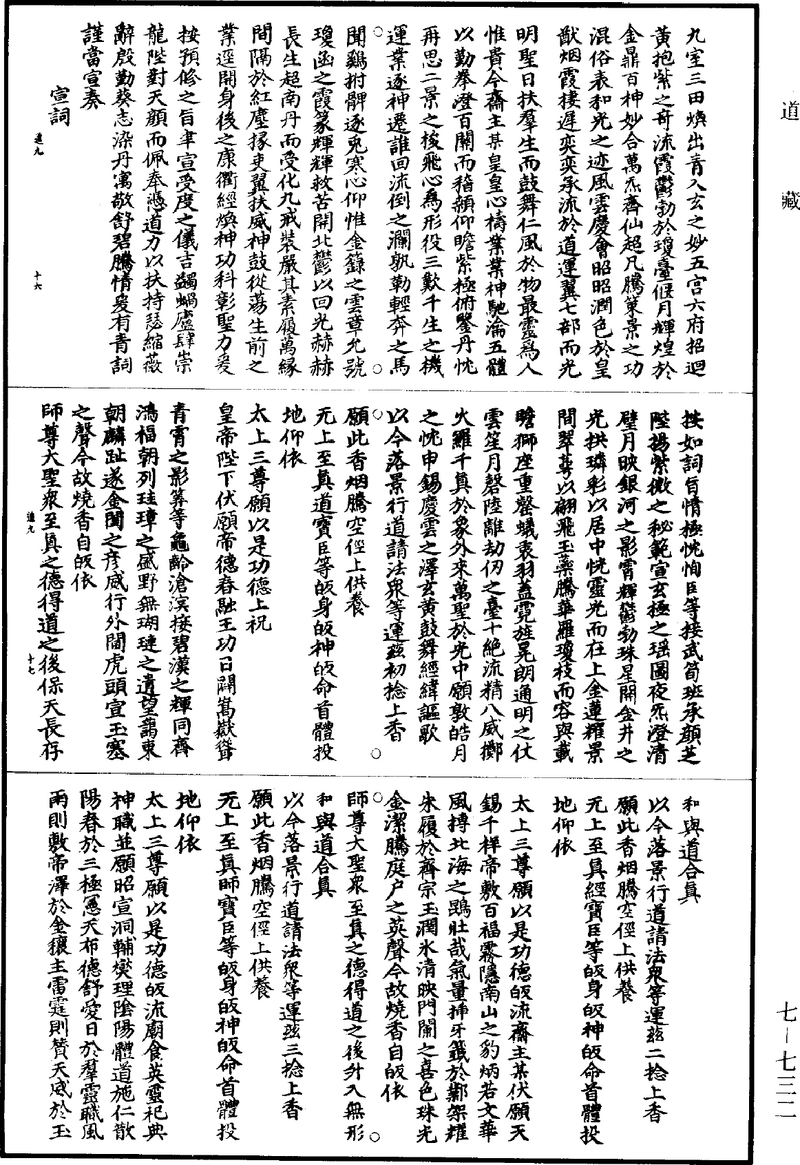 道藏
九室三田煥出青入玄之妙五宫六府招迴
黃抱紫之奇流霞鬱勃於瓊臺偃月輝煌於
金鼎百神妙合萬炁齊仙超凡騰藥景之功
混俗表和光之迹風雲慶會昭昭潤色於皇
猷烟霞棲遲奕奕承流於道運翼七部而光
明聖日扶羣生而鼓舞仁風於物最靈爲人
惟貴今齋主某皇皇心檮業業神馳淪五體
以勤拳澄百關而稽顙仰瞻紫極俯鑒丹忱
再思二景之梭飛心爲形役三歎千生之機
運業逐神遷誰回流倒之瀾孰勒輕奔之馬
聞鷄拊髀逐兎寒心仰惟金籙之雲章允號
瓊函之霞篆輝輝救苦開北鬱以回光赫赫
長生超南丹而受化九戒裝嚴其素履萬緣
間隔於紅塵掾吏翼扶威神鼓從蕩生前之
業逕開身後之康衢經煥神功科彰聖力爰
按預修之旨聿宣受度之儀吉蠲蝸廬肆崇
龍陛對天顔而佩奉憑道力以扶持瑟縮薇
辭殷勤葵志染丹寓敬舒碧騰情爰有青詞
謹當宣奏
宣詞
道九　十六
按如詞旨情極忱恂臣等接武筍班承顔芝
陛揚紫微之秘範宣玄極之瑶圖夜炁澄清
璧月映銀河之影霄輝鬱勃珠星開金井之
光拱璘彩以居中恍靈光而在上金蓮耀景
間翠蕚以翩飛玉蘂騰華羅瓊枝而容與載
瞻獅座重罄蟻衷羽蓋霓旌晃朗通明之仗
雲笙月磬陸離劫仞之臺十絶流精八威擲
火羅千真於象外來萬聖於光中願敦皓月
之忱申錫慶雲之澤玄黃鼓舞經緯謳歌
以今落景行道請法衆等運兹初捻上香
願此香烟騰空徑上供養
无上至真道寶臣等皈身皈神皈命首體投
地仰依
太上三尊願以是功德上祝
皇帝陛下伏願帝德春融王功日闢嵩嶽聳
青霄之影筭等龜齡滄溟接碧漢之輝同齊
鴻福朝列珪璋之盛野無瑚璉之遺望藹東
朝麟趾遂金閨之彥威行外閫虎頭宣玉塞
之聲今故燒香自皈依
師尊大聖衆至真之德得道之後保天長存
道九　十七
和與道合真
以今落景行道請法衆等運兹二捻上香
願此香烟騰空徑上供養
无上至真經寶臣等皈身皈神皈命首體投
地仰依
太上三尊願以是功德皈流齋主某伏願天
錫千祥帝敷百福霧隱南山之豹炳若文華
風摶北海之鵾壯哉氣量揷牙籤於鄴架耀
朱履於齊宗玉潤氷清映門闌之喜色珠光
金潔騰庭户之英聲今故燒香自皈依
師尊大聖衆至真之德得道之後升入無形
和與道合真
以今落景行道請法衆等運兹三捻上香
願此香烟騰空徑上供養
无上至真師寶臣等皈身皈神皈命首體投
地仰依
太上三尊願以是功德皈流廟食英靈祀典
神職並願昭宣洞輔爕理陰陽體道施仁散
陽春於三極憲天布德舒愛日於羣靈職風
雨則敷帝澤於金穰主雷霆則贊天威於玉
七—七三二